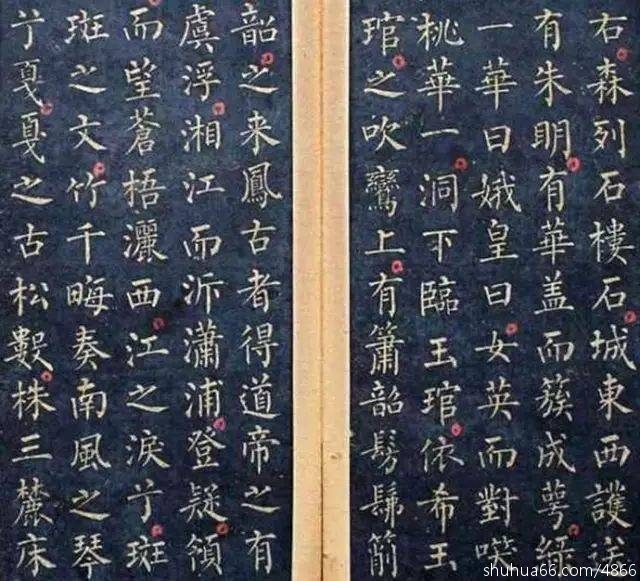 右森列石樓石城東西護送
有朱明有華盖而簇成萼綠
一華曰娥皇曰女英而對
桃華一洞下臨玉琯依希玉
琯之吹鸞上有簫韶髣髴箾
韶之来鳳古者得道帝之有
虞浮湘江而泝瀟浦登疑領
而望蒼梧灑西江之淚兮斑
斑之文竹千晦奏南風之琴
兮戛戛之古松數株三麓床
shuhua66.com/4866